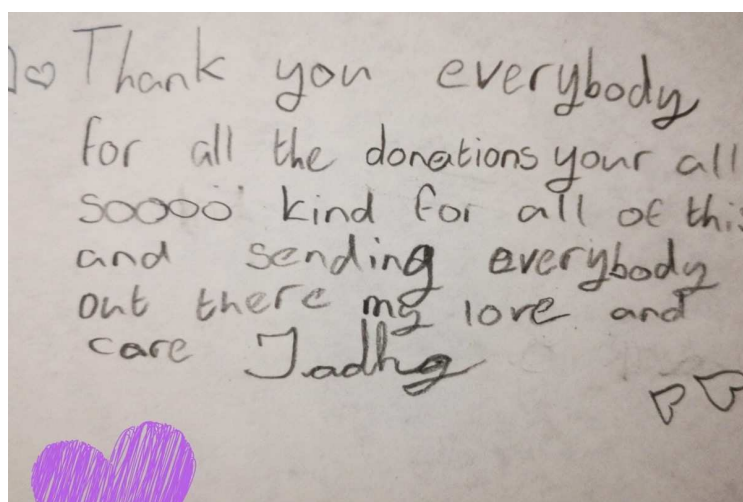 Thank you everybody
for all the donations your all
soooo kind for all of this
and sending everybody
out there my love and
care Tadhg